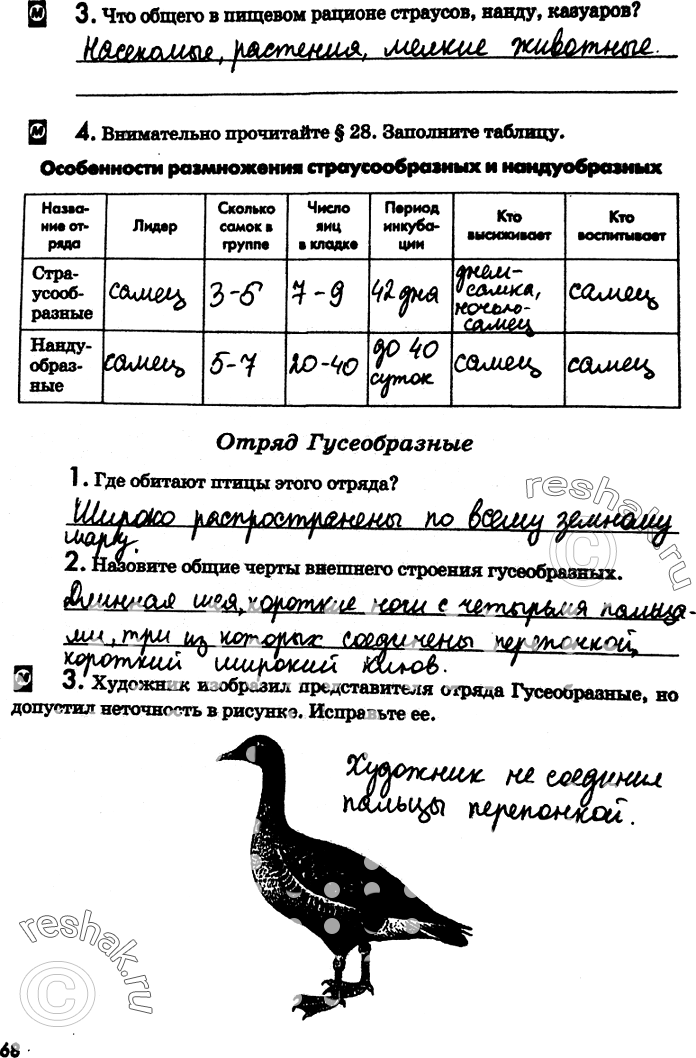 3. Что общего в пищевом рационе страусов, нанду, казуаров?
Насекомые, растения, мелкие животные.
4. Внимательно прочитайте § 28. Заполните таблицу.
Особенности размножения страусообразных и нандуобразных
Назва-
ние от-
ряда
Лидер
Сколько
самок в
группе
Число
яиц
в кладке
Период
инкуба-
ции
Кто
высиживает
Кто
воспитывает
Стра-
усооб-
разные
самец
3-5
7-9
42 дня
днем-
самка,
ночью-
самец
самец
Нанду-
образ-
ные
самец
5-7
20-40
до 40
суток
самец
самец
Отряд Гусеобразные
1. Где обитают птицы этого отряда?
Широко распространены по всему земному
шару.
2. Назовите общие черты внешнего строения гусеобразных.
Длинная шея, короткие ноги с четырьмя пальца-
ми, три из которых соединены перепонкой,
короткий широкий клюв.
3. Художник изобразил представителя отряда Гусеобразные, но
допустил неточность в рисунке. Исправьте ее.
Художник не соединил
пальцы перепонкой.
reshak.ru
reshak.ru
68